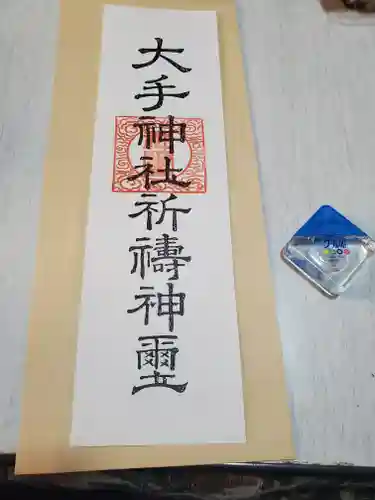 大手神社祈禱神璽